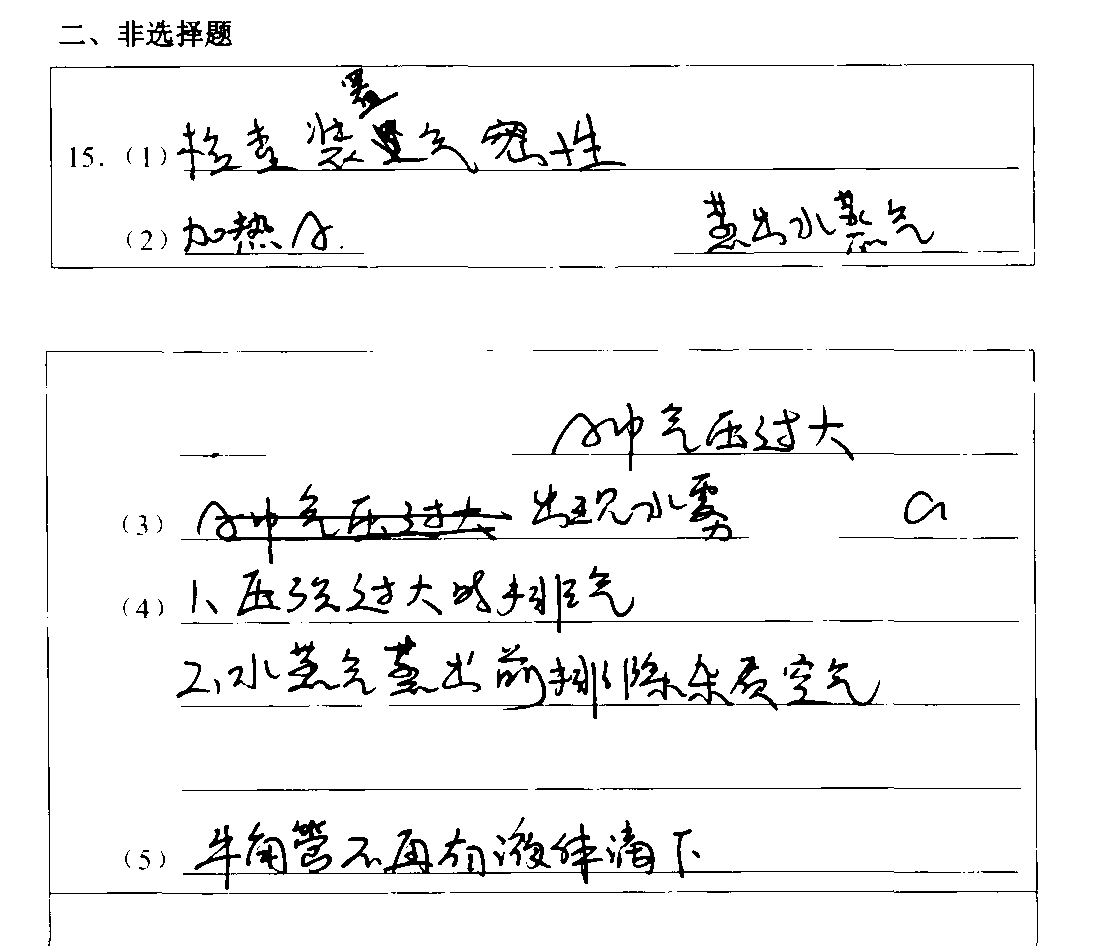 二、非选择题
15.(1) 检查装置气密性
(2) 加热A. 蒸出水蒸气
A中气压过大
(3) A中气压过大 出现水雾 a
(4) 1、压强过大时排气
2、水蒸气蒸出前排除杂质空气
(5) 牛角管不再有液体滴下